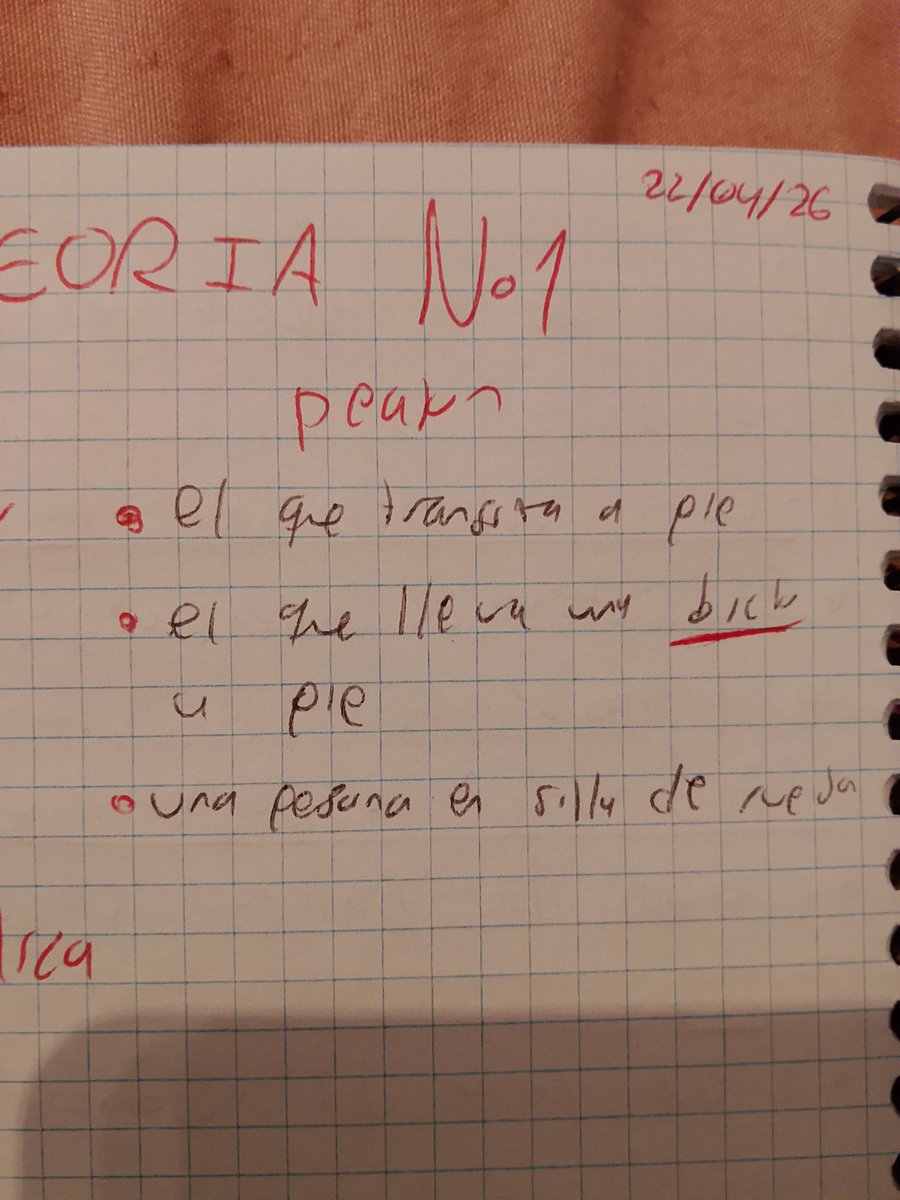 22/04/26
EORIA No1
peaton
• el que transita a pie
• el que lleva una bici
a pie
• una pesona en silla de rueda
lica